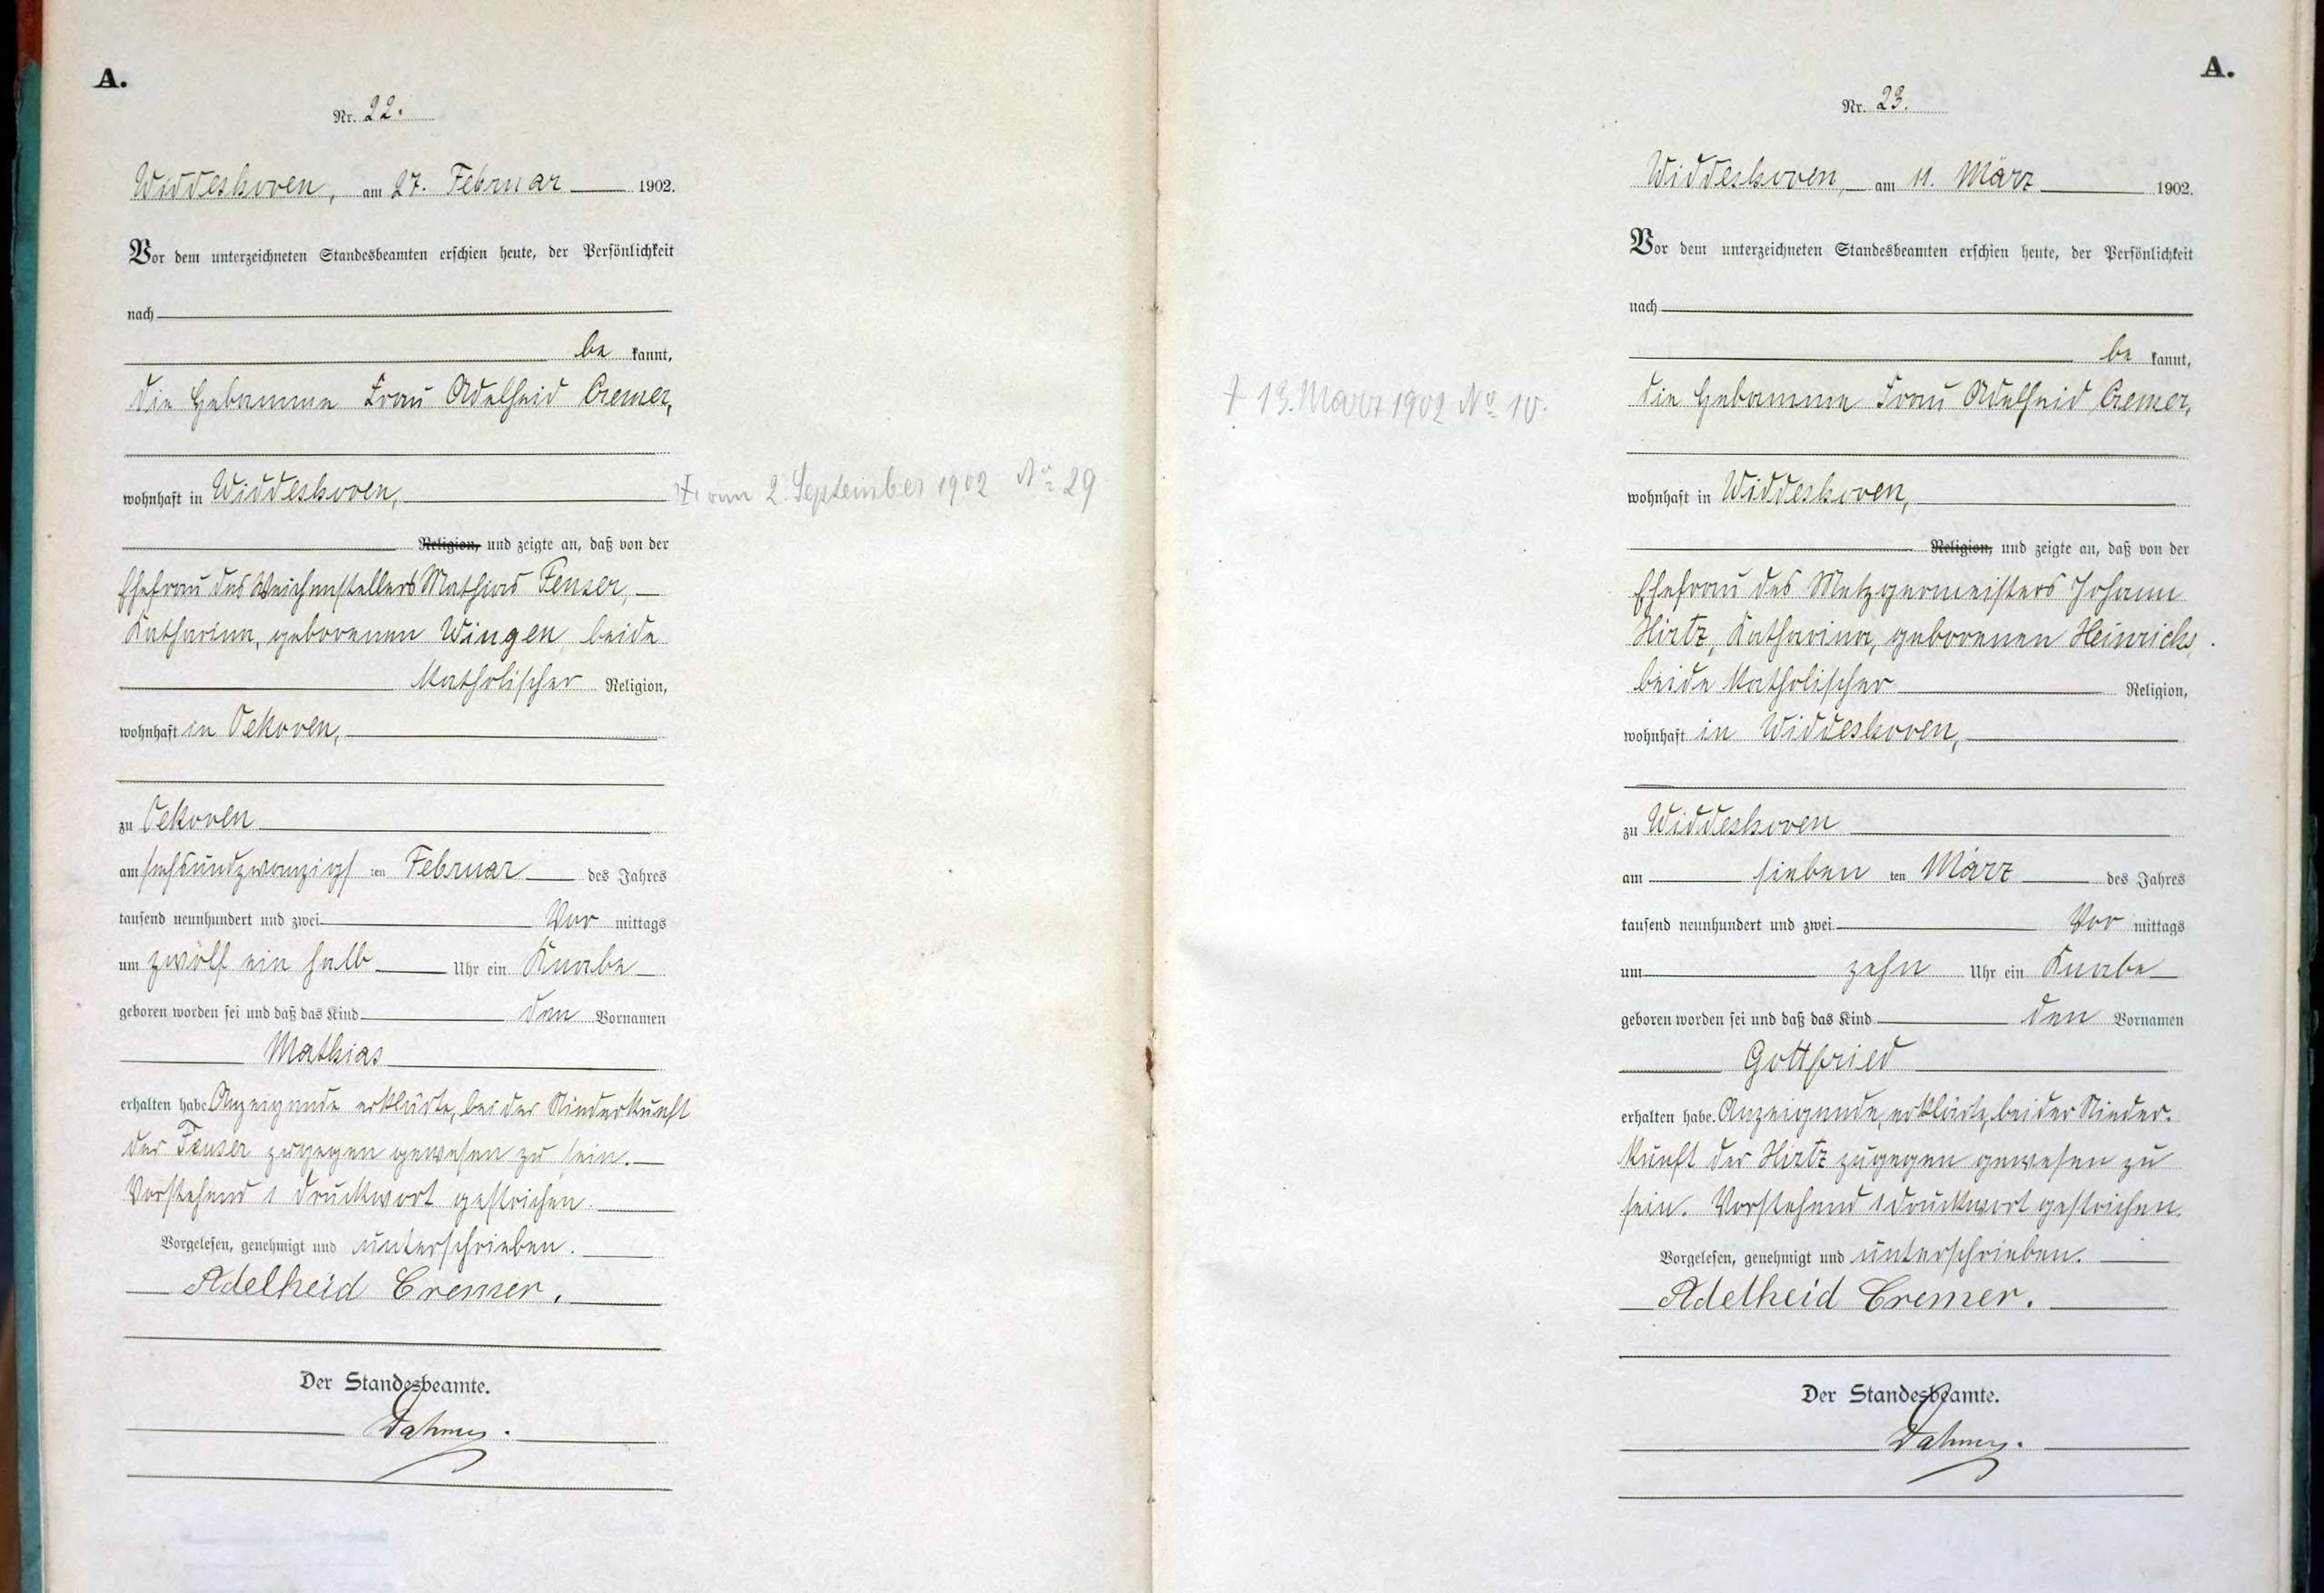 A.
Nr. 22.
Widdeshoven, am 27. Februar 1902.
Vor dem unterzeichneten Standesbeamten erschien heute, der Persönlichkeit
nach
be kannt,
die Hebamme Frau Adelheid Cremer,
wohnhaft in Widdeshoven,
Religion, und zeigte an, daß von der
Ehefrau des Weichenstellers Mathias Fenser,
Katharina, geborenen Wingen beide
katholischer Religion,
wohnhaft in Oekoven,
zu Oekoven
am sechsundzwanzigs ten Februar des Jahres
tausend neunhundert und zwei Vor mittags
um zwölf ein halb Uhr ein Knabe
geboren worden sei und daß das Kind den Vornamen
Mathias
erhalten habe. Anzeigende erklärte, bei der Niederkunft
der Fenser zugegen gewesen zu sein.
Vorstehend 1 Druckwort gestrichen.
Vorgelesen, genehmigt und unterschrieben.
Adelheid Cremer.
Der Standesbeamte.
† am 2. September 1902 No 29
A.
Nr. 23.
Widdeshoven, am 11. März 1902.
Vor dem unterzeichneten Standesbeamten erschien heute, der Persönlichkeit
nach
be kannt,
† 13. März 1902 No 10.
die Hebamme Frau Adelheid Cremer,
wohnhaft in Widdeshoven,
Religion, und zeigte an, daß von der
Ehefrau des Metzgermeisters Johann
Hirtz, Katharina, geborenen Heinrichs,
beide katholischer Religion,
wohnhaft in Widdeshoven,
zu Widdeshoven
am sieben ten März des Jahres
tausend neunhundert und zwei Vor mittags
um zehn Uhr ein Knabe
geboren worden sei und daß das Kind den Vornamen
Gottfried
erhalten habe. Anzeigende, erklärte, bei der Nieder-
kunft der Hirtz zugegen gewesen zu
sein. Vorstehend 1 Druckwort gestrichen.
Vorgelesen, genehmigt und unterschrieben.
Adelheid Cremer.
Der Standesbeamte.